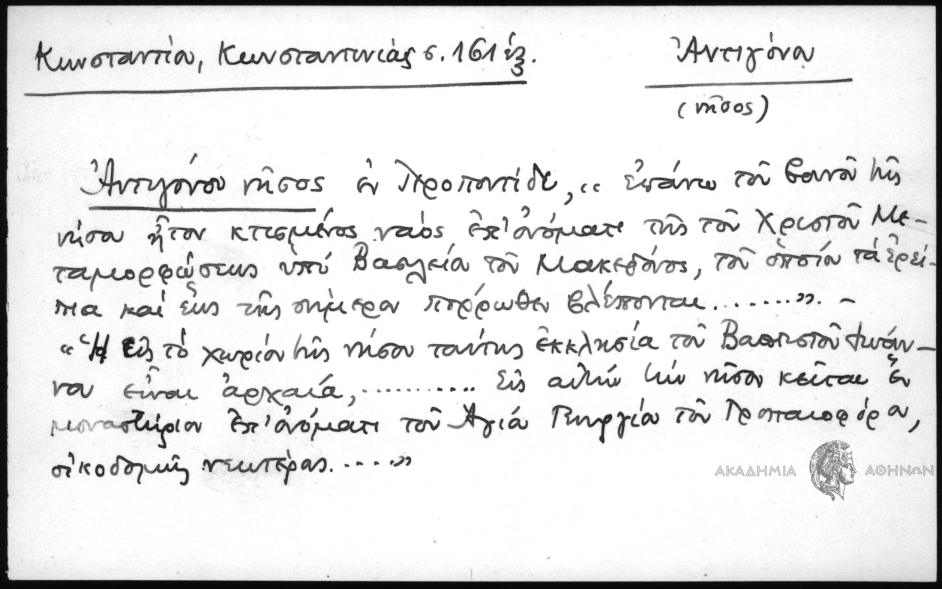 Κωνσταντίου, Κωνσταντινιάς σ. 161 ἑξ.
Ἀντιγόνη
(νῆσος)
Ἀντιγόνου νῆσος ἐν Προποντίδι, „ ἐπάνω τοῦ βουνοῦ τῆς
νήσου ἦτον κτισμένος ναὸς ἐπ' ὀνόματι τῆς τοῦ Χριστοῦ Με-
ταμορφώσεως ὑπὸ Βασιλείου τοῦ Μακεδόνος, τοῦ ὁποίου τὰ ἐρεί-
πια καὶ ἕως τῆς σήμερον πόρρωθεν βλέπονται........". -
„ Ἡ εἰς τὸ χωρίον τῆς νήσου ταύτης ἐκκλησία τοῦ Βαπτιστοῦ Ἰωάν-
νου εἶναι ἀρχαία, .......... Εἰς αὐτὴν τὴν νῆσον κεῖται ἓν
μοναστήριον ἐπ' ὀνόματι τοῦ Ἁγίου Γεωργίου τοῦ Τροπαιοφόρου,
οἰκοδομῆς νεωτέρας....."
ΑΚΑΔΗΜΙΑ ΑΘΗΝΩΝ